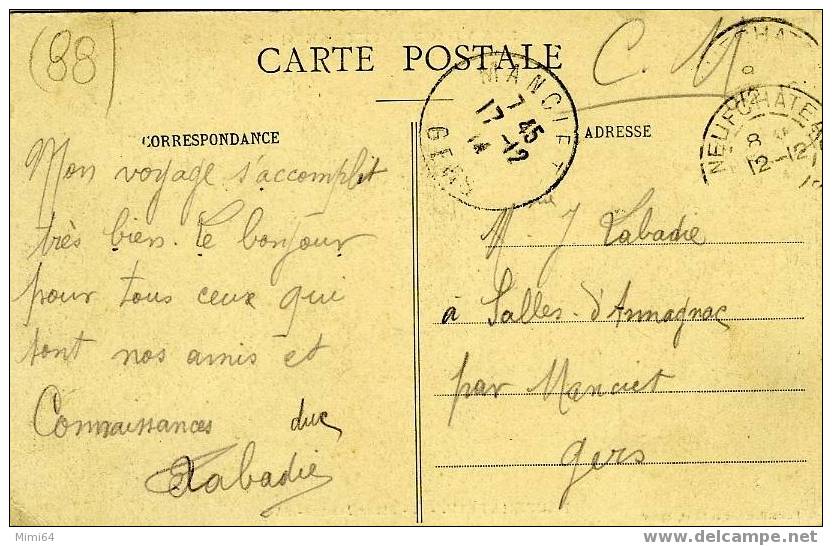 (88)
CARTE POSTALE
C. M
MANCIET
7 45
17-12
14
GERS
NEUFCHATEAU
8
12-12
CORRESPONDANCE
ADRESSE
Mon voyage s'accomplit
très bien. Le bonjour
pour tous ceux qui
sont nos amis et
Connaissances
Labadie
Mme J Labadie
à Salles-d'Armagnac
par Manciet
gers
Mimi64
www.delcampe.net